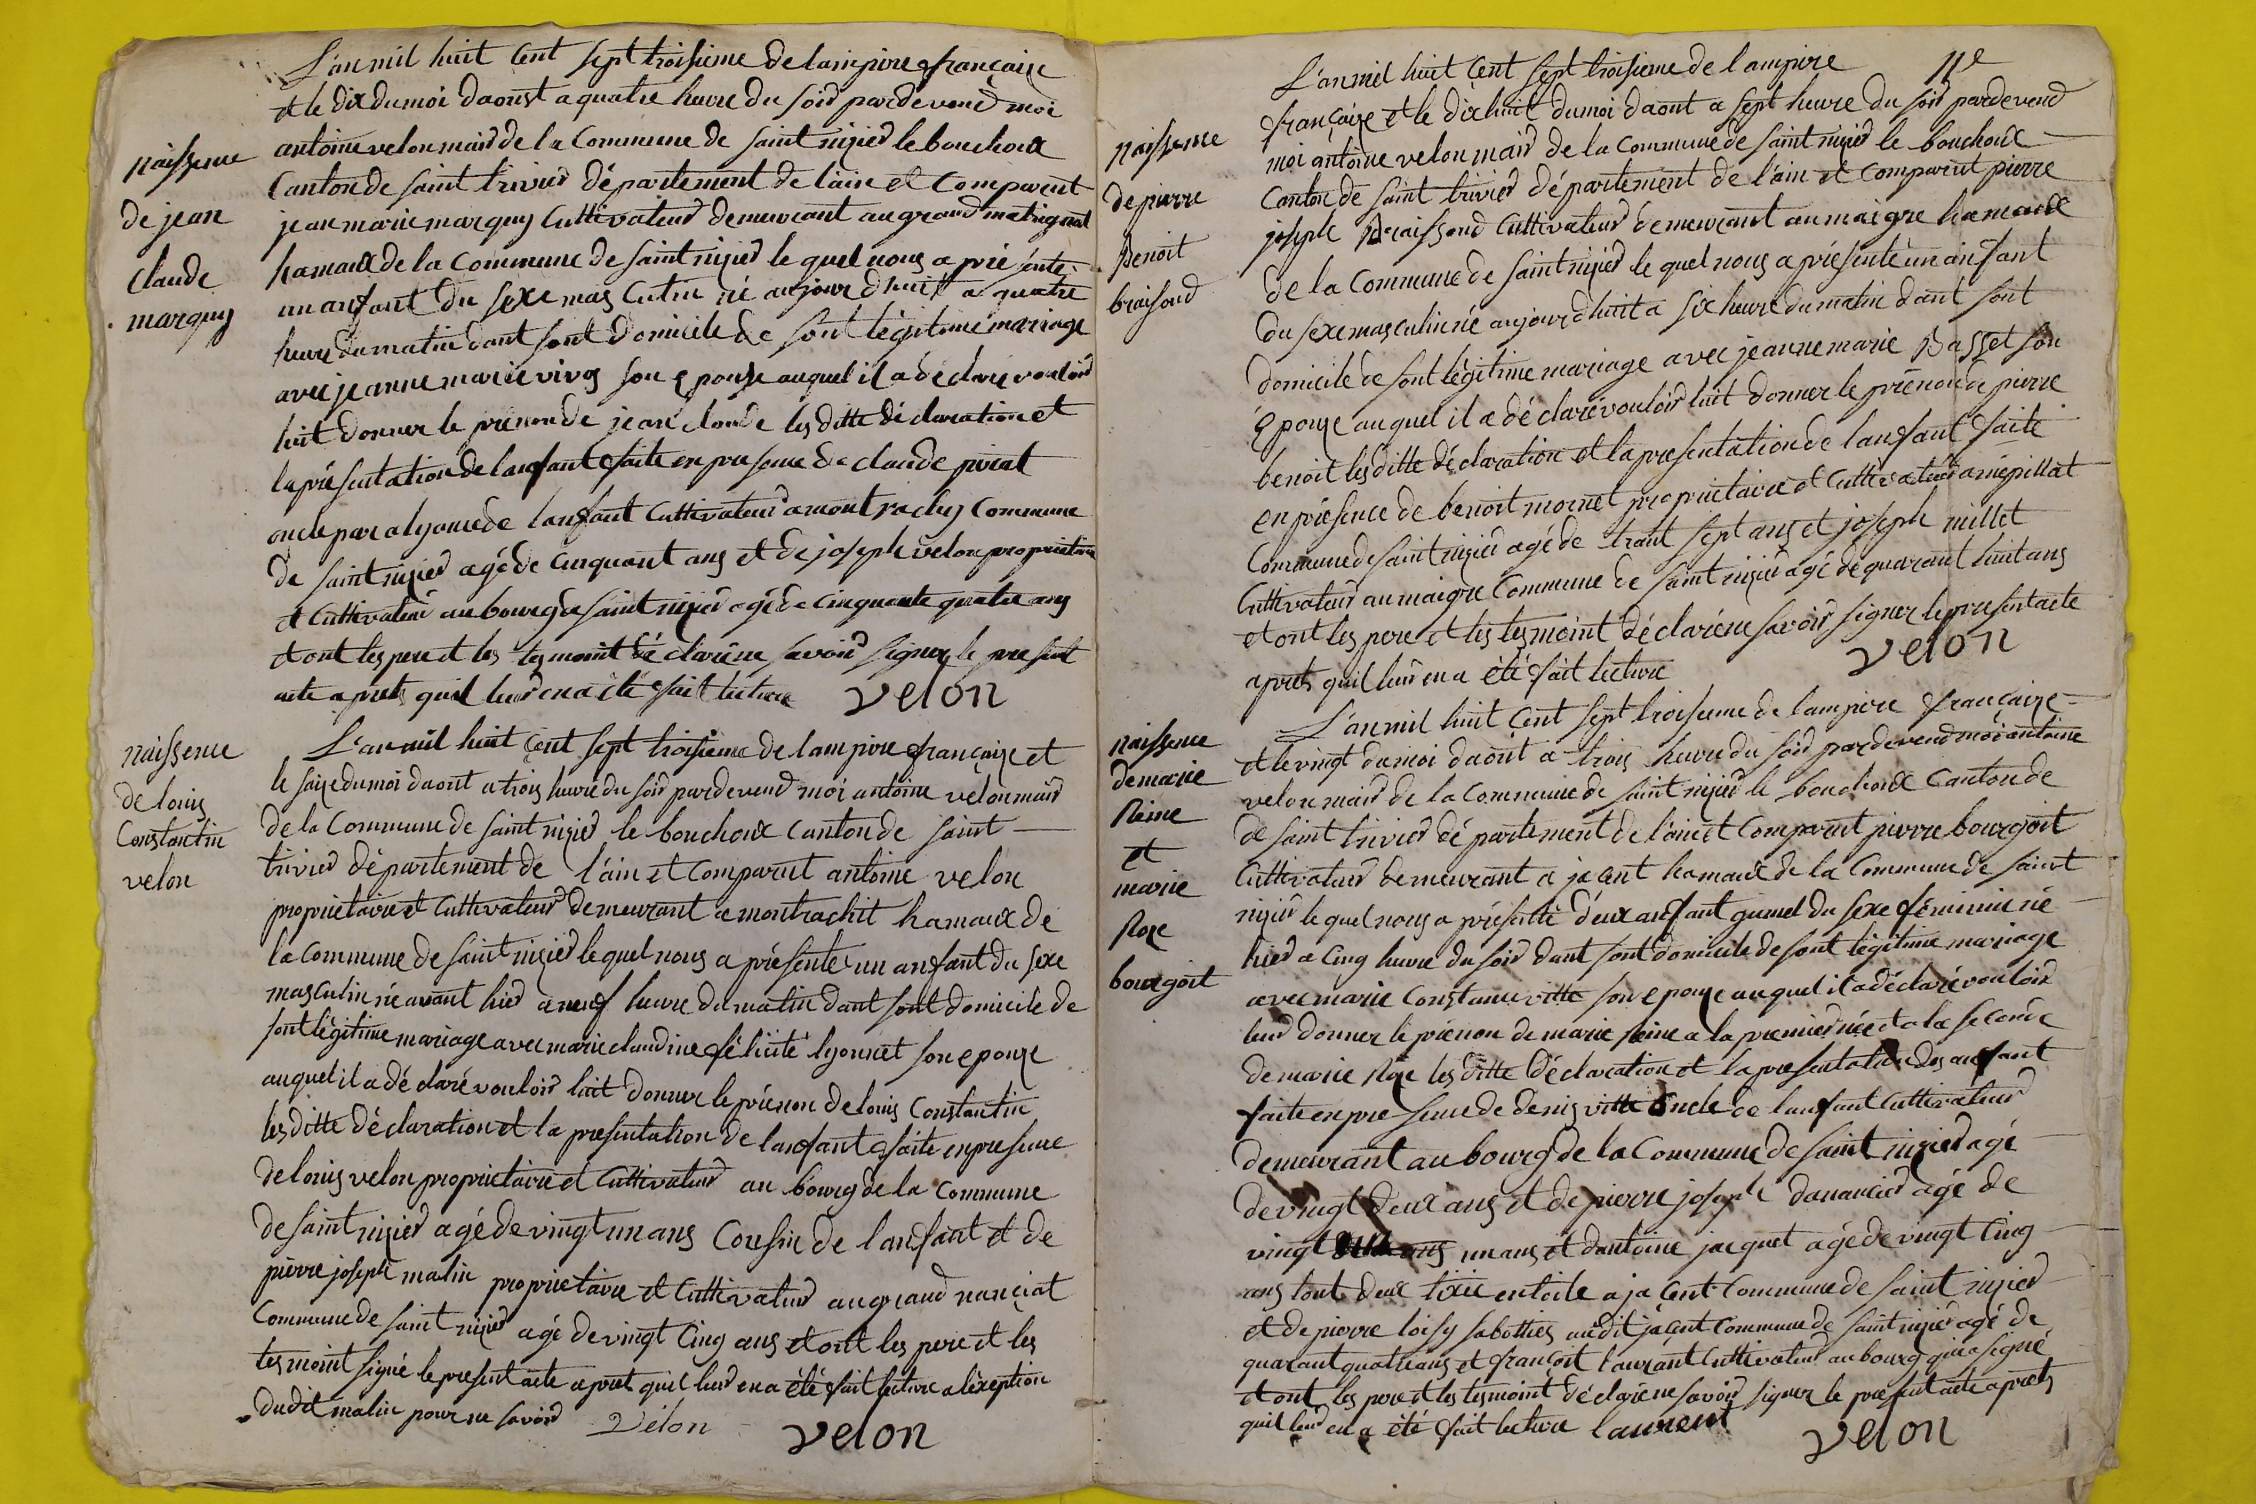 L'an mil huit Cent sept troisieme de lampire française
et le dix du moi daoust a quatre heure du soir pardevend moi
naissence
de jean
claude
marguy
antoine velon mair de la Commune de saint nizier le bouchoux
Canton de saint trivier département de l'ain et Comparent
jean marie marguy Cultivateur demeurant au grand matrignat
hamaux de la Commune de saint nizier le quel nous a présenté
un anfant du sexe mas Culin né aujourdhuit a quatre
heure du matin dant sont domicile de sont légitime mariage
avec jeanne marie vivos son epouse auquel il a déclaré vouloir
luit donner le prénon de jean claude les ditte déclaration et
la présentation de lanfant faite en presence de claude poriat
oncle par alyance de lanfant Cultivateur a montrachy Commune
de saint nizier agé de Cinquant ans et de joseph velon proprietaire
et Cultivateur au bourg de saint nizier agé de cinquante quatre ans
et ont les pere et les tesmoint déclaré ne savoir signer le present
acte apret quil leur en a été fait lecture velon
naissence
de louis
Constantin
velon
L'an mil huit Cent sept troisieme de lampire française et
le saize du moi daout a trois heure du soir pardevend moi antoine velon mair
de la Commune de saint nizier le bouchoux Canton de saint
trivier département de l'ain et Comparut antoine velon
proprietaire et Cultivateur demeurant a montrachit hamaux de
la Commune de saint nizier le quel nous a présenté un anfant du sexe
masculin né avant hier a neuf heure du matin dant sont domicile de
sont légitime mariage avec marie claudine félicité lyonnet son epouze
auquel il a déclaré vouloir luit donner le prénon de louis Constantin
les ditte déclaration et la presentation de lanfant faite en presence
de louis velon proprietaire et Cultivateur au bourg de la Commune
de saint nizier agé de vingt un ans Cousin de lanfant et de
pierre joseph malin proprietaire et Cultivateur au grand nanciat
Commune de saint nizier agé de vingt Cinq ans et ont les pere et les
tesmoint signé le present acte apret quil leur en a été fait lecture a léxeption
dudit malin pour ne savoir Vélon velon
11e
L'an mil huit Cent sept troisieme de lampire
française et le dix huit du moi daout a sept heure du soir pardevend
naissence
de pierre
Benoit
braisoud
moi antoine velon mair de la Commune de saint nizier le bouchoux
Canton de saint trivier département de l'ain et Comparut pierre
joseph Braissoud Cultivateur demeurant au maigre hamaux
de la Commune de saint nizier le quel nous a présenté un anfant
du sexe masculin né aujourdhuit a six heure du matin dant sont
domicile de sont légitime mariage avec jeanne marie Basset son
épouze auquel il a déclaré vouloir luit donner le prénon de pierre
benoit les ditte déclaration et la presentation de lanfant faite
en présence de benoit mornet proprietaire et Cultivateur a mépillat
Commune de saint nizier agé de trant sept ans et joseph millet
Cultivateur au maigre Commune de saint nizier agé de quarant huit ans
et ont les pere et les tesmoint déclaré ne savoir signer le present acte
aprets quil leur en a été fait lecture velon
naissence
de marie
Reine
et
marie
Roze
bourgoit
L'an mil huit Cent sept troisieme de lampire françaize
et le vingt du moi daoût a trois heure du soir pardevend moi antoine
velon mair de la Commune de saint nizier le bouchoux Canton de
de saint trivier département de l'ain et Comparut pierre bourgoit
Cultivateur demeurant a jacent hamaux de la Commune de saint
nizier le quel nous a présenté deux anfant gumel du sexe féminin né
hier a Cinq heure du soir dant sont domicile de sont légitime mariage
avec marie Constance vitte son epouze auquel il a déclaré vouloir
leur donner le prénon de marie reine a la premier née et a la seconde
de marie Roze les ditte déclaration et la presentation des anfant
faite en presence de denis vitte oncle de lanfant Cultivateur
demeurant au bourg de la Commune de saint nizier agé
de vingt deux ans et de pierre joseph danancier agé de
vingt un ans et dantoine jacquet agé de vingt Cinq
ans tout deux tixié en toile a jacent Commune de saint nizier
et de pierre loisy sabottiés audit jacent Commune de saint nizier agé de
quarant quatre ans et françoit laurant Cultivateur au bourg qui a signé
et ont les pere et les tesmoint déclaré ne savoir signer le present acte aprets
quil leur en a été fait lecture laurent velon